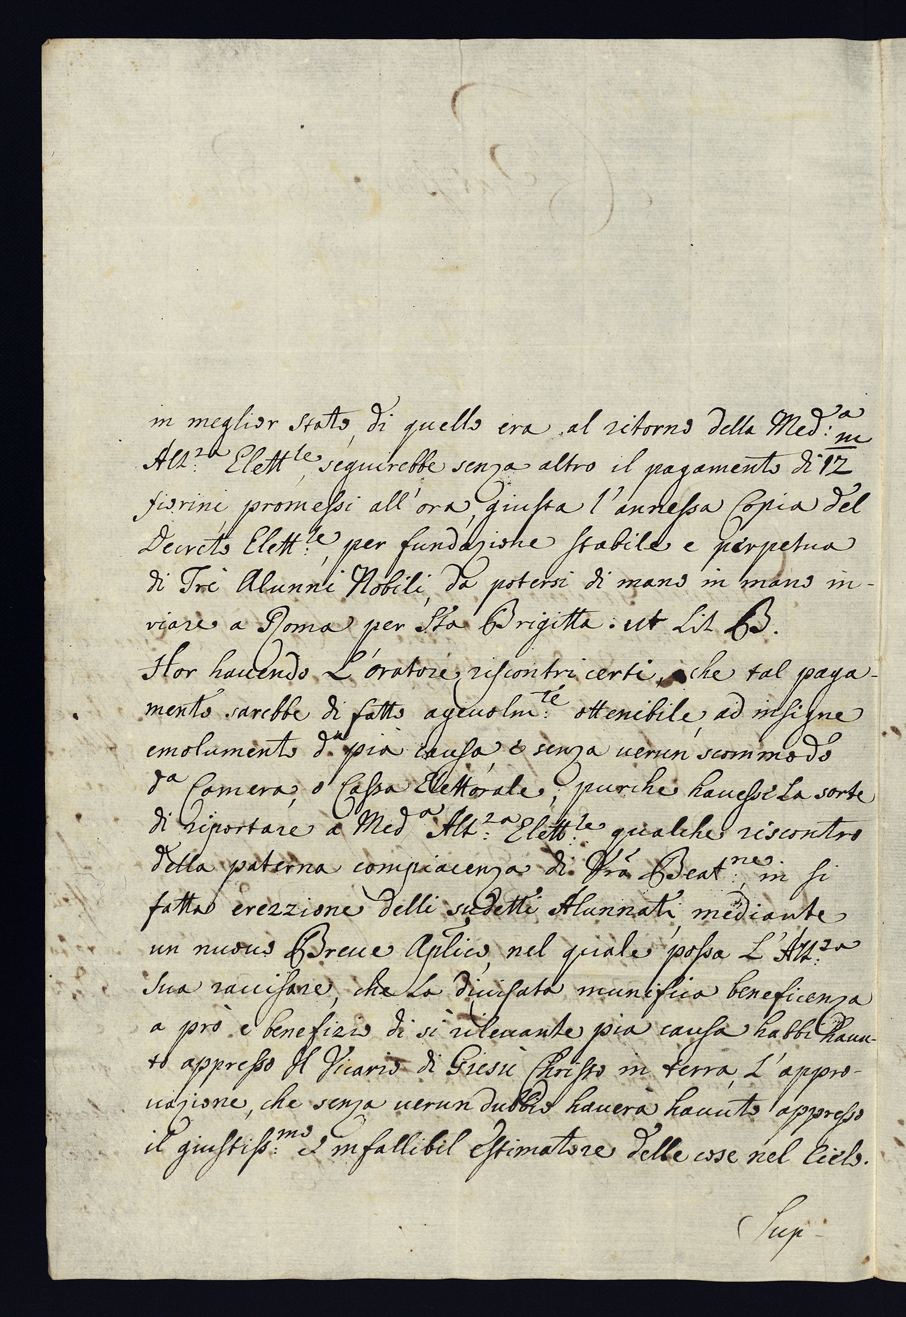 in meglior stato, di quello era al ritorno della Med:ª
Alt:za Elett:le seguirebbe senza altro il pagamento di 12/m
fiorini promessi all'ora, giusta l'annessa Copia del
Decreto Elett:le, per fundazione stabile e perpetua
di Tre Alunni Nobili, da potersi di mano in mano in-
viare a Roma per Sta Brigitta. ut Lit. B.
Hor havendo L'oratore, riscontri certi, che tal paga-
mento sarebbe di fatto agevolm:te ottenibile, ad insigne
emolumento d'un pia causa, e senza verun scommodo
da Camera, o Cassa Elettorale, purche havesse La sorte
di riportare a Meda Alt:za Elett:le qualche riscontro
della paterna compiacenza di Vra Beat:ne, in si
fatta erezzione delli sudetti Alunnati, mediante
un nuovo Breve Aplico, nel quale possa L'Alt:za
Sua ravvisare, che La divisata munifica beneficenza
a prò e benefizio di sì rilevante pia causa habbi havu-
to appresso Il Vicario di Giesù Christo in terra, L'appro-
vazione, che senza verun dubbio haverà havuto appresso
il giustiss:mo e infallibil estimatore delle cose nel Cielo.
Sup-